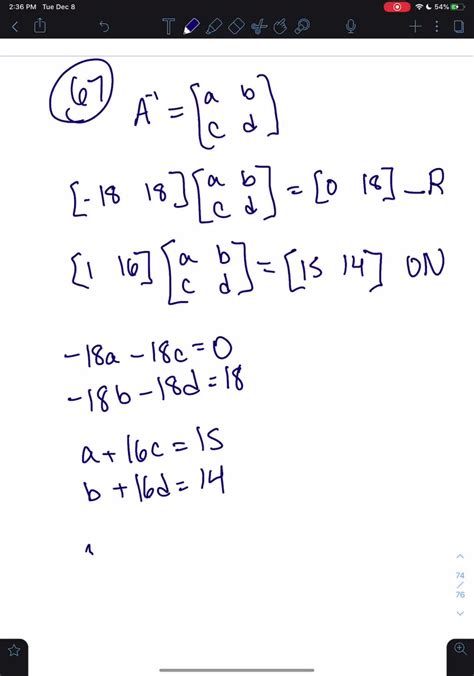 2:36 PM Tue Dec 8
54%
67
A⁻¹ = [a b
c d]
[-18 18] [a b
c d] = [0 18] _R
[1 16] [a b
c d] = [15 14] ON
-18a - 18c = 0
-18b - 18d = 18
a + 16c = 15
b + 16d = 14
74
/
76